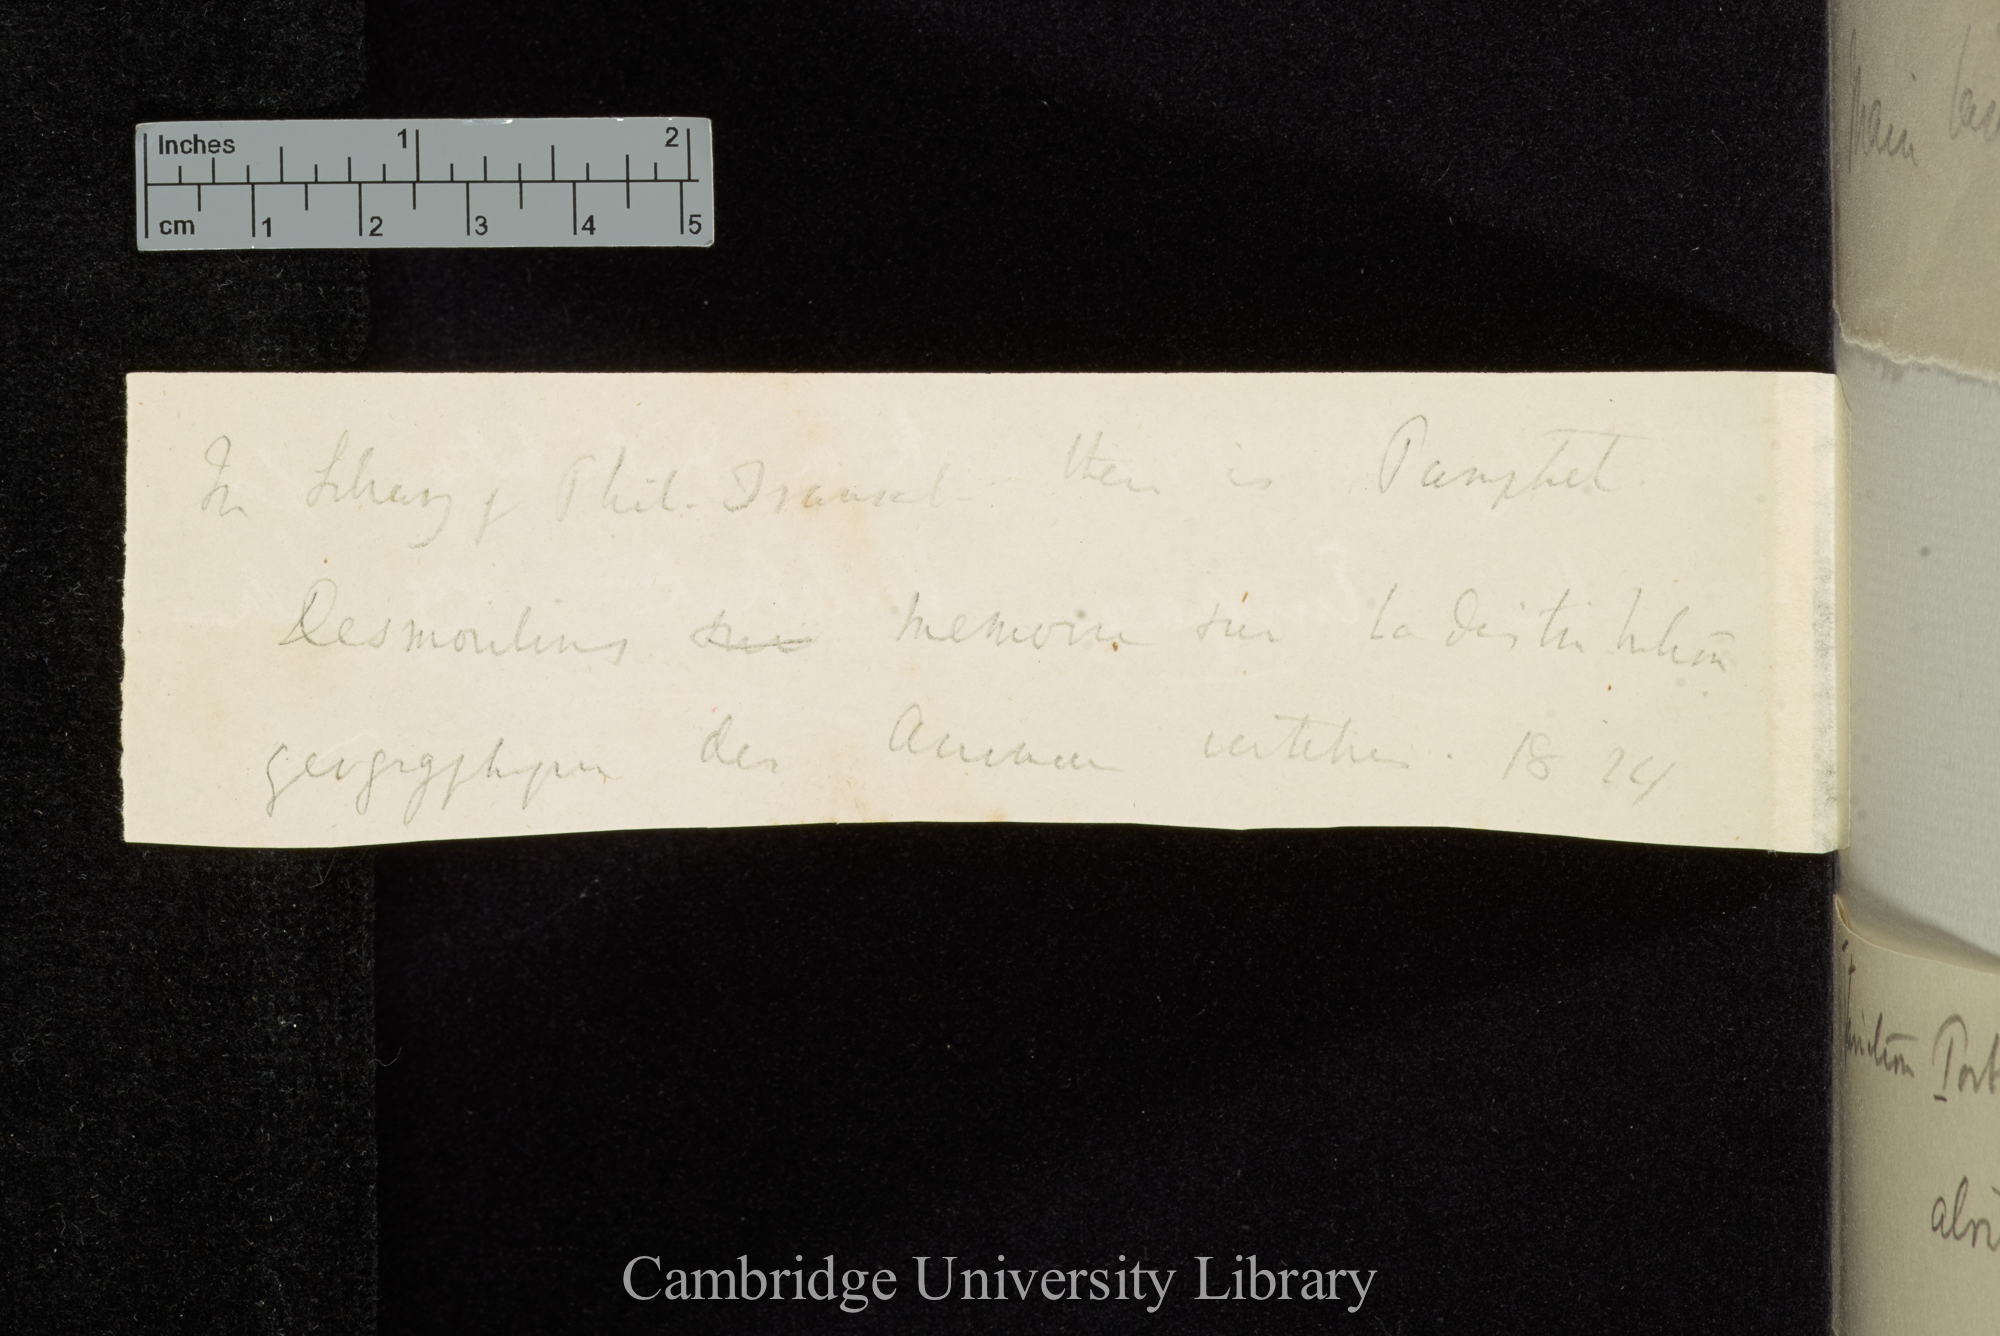 Inches 1 2
cm 1 2 3 4 5
Main
In Library of Phil. Transact. there is Pamphlet.
Desmoulins sur memoire sur la distribution
geographique des Animaux vertebres. 1824
Port
Cambridge University Library